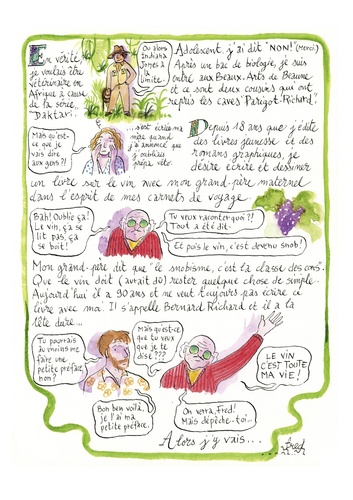 En vérité,
je voulais être
vétérinaire en
Afrique à cause
de la série
"Daktari".
Ou alors
Indiana
Jones à
la limite.
Adolescent, j'ai dit "NON!" (Merci.)
Après un bac de biologie, je suis
entré aux Beaux-Arts de Beaune
et ce sont deux cousins qui ont
repris les caves "Parigot-Richard".
Mais qu'est-
ce que je
vais dire
aux gens?!
...s'est écriée ma
mère quand
j'ai annoncé que
j'oubliais
prépa véto.
Depuis 18 ans que j'édite
des livres jeunesse et des
romans graphiques, je
désire écrire et dessiner
un livre sur le vin avec mon grand-père maternel
dans l'esprit de mes carnets de voyage.
Bah! Oublie ça!
Le vin, ça se
lit pas, ça
se boit!
Tu veux raconter quoi?!
Tout a été dit.
Et puis le vin, c'est devenu snob!
Mon grand-père dit que "le snobisme, c'est la classe des cons".
Que le vin doit (aurait dû) rester quelque chose de simple.
Aujourd'hui il a 90 ans et ne veut toujours pas écrire ce
livre avec moi. Il s'appelle Bernard Richard et il a la
tête dure...
Tu pourrais
au moins me
faire une
petite préface,
non?
Mais qu'est-ce
que tu veux
que je te
dise???
LE VIN
C'EST TOUTE
MA VIE!
Bon ben voilà,
je l'ai ma
petite préface.
On verra, Fred!
Mais dépêche-toi...
Alors j'y vais...
fred